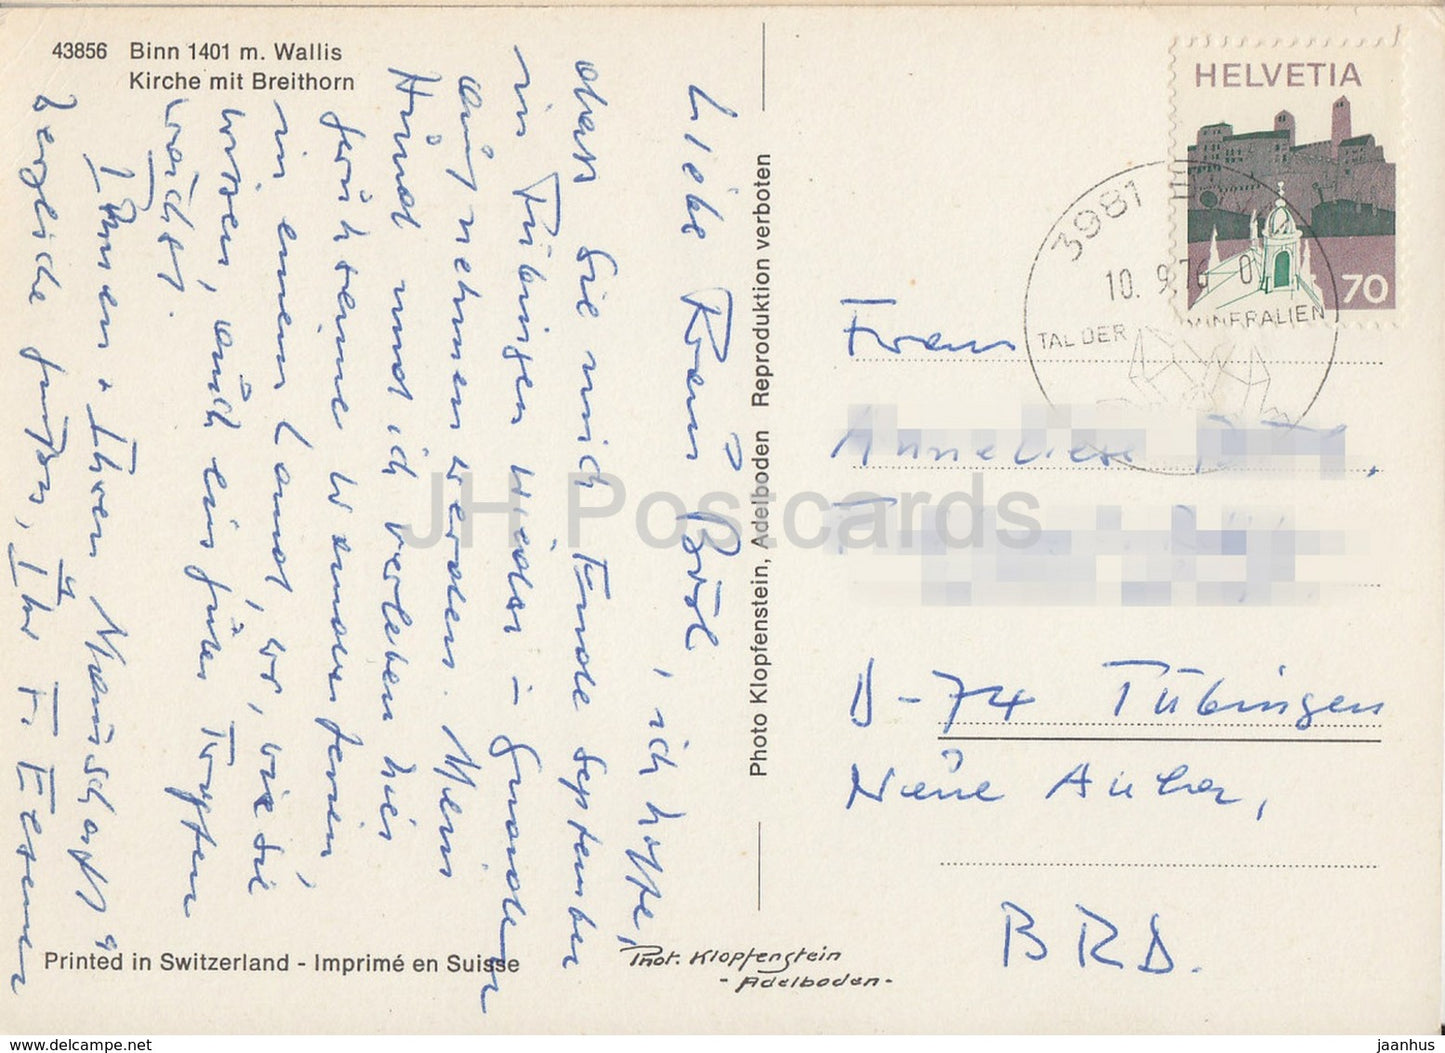 43856 Binn 1401 m. Wallis
Kirche mit Breithorn
Liebe Frau Bröl, ich hoffe,
dass Sie mich Ende September
in Tübingen wieder in Gnaden
aufnehmen werden. Mein
Hund und ich verleben hier
geruhsame Wanderferien
in einem Land, wo, wie Sie
wissen, auch ein guter Tropfen
wächst.
Ihnen + Ihrer
herzliche Grüsse, Ihr F.
Printed in Switzerland - Imprimé en Suisse
Photo Klopfenstein, Adelboden Reproduktion verboten
Phot. Klopfenstein
- Adelboden -
HELVETIA
70
3981
10.9.76
TAL DER MINERALIEN
Frau
Anneliese
D-74 Tübingen
Neue Aula,
BRD.
JH Postcards
www.delcampe.net
jaanhus